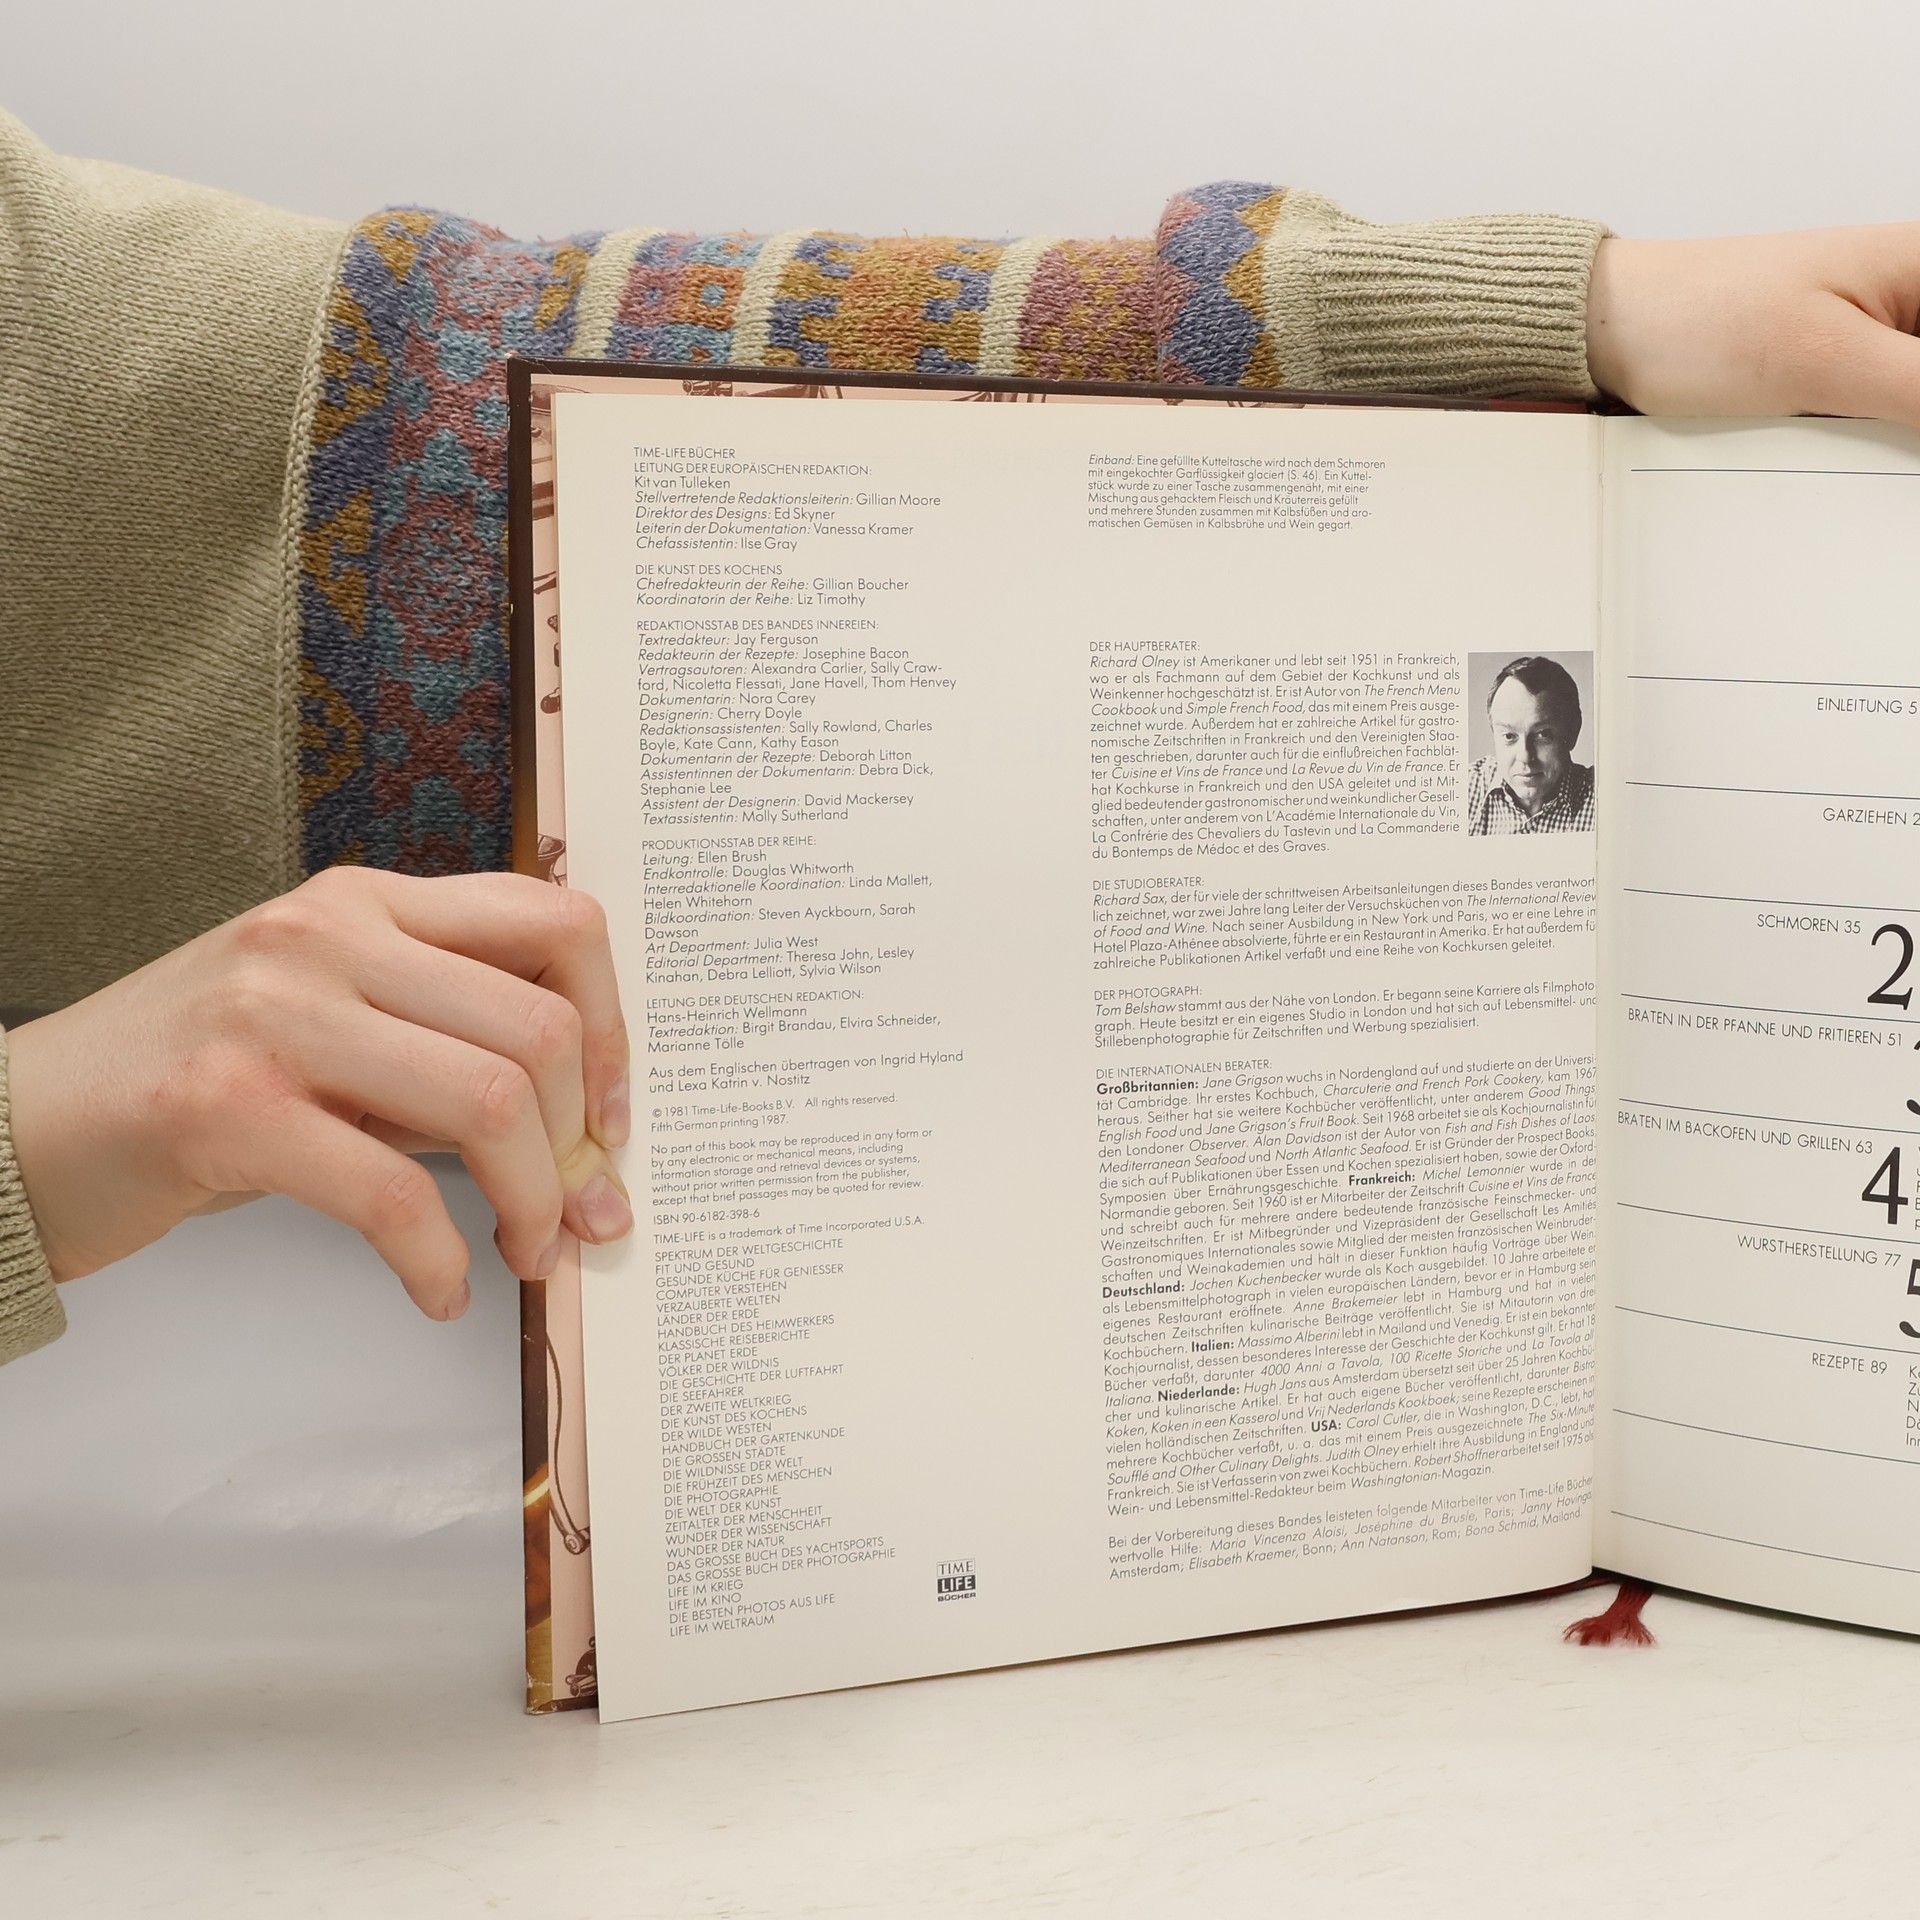 TIME-LIFE BÜCHER
LEITUNG DER EUROPÄISCHEN REDAKTION:
Kit van Tulleken
Stellvertretende Redaktionsleiterin: Gillian Moore
Direktor des Designs: Ed Skyner
Leiterin der Dokumentation: Vanessa Kramer
Chefassistentin: Ilse Gray
DIE KUNST DES KOCHENS
Chefredakteurin der Reihe: Gillian Boucher
Koordinatorin der Reihe: Liz Timothy
REDAKTIONSSTAB DES BANDES INNEREIEN:
Textredakteur: Jay Ferguson
Redakteurin der Rezepte: Josephine Bacon
Vertragsautoren: Alexandra Carlier, Sally Craw-
ford, Nicoletta Flessati, Jane Havell, Thom Henvey
Dokumentarin: Nora Carey
Designerin: Cherry Doyle
Redaktionsassistenten: Sally Rowland, Charles
Boyle, Kate Cann, Kathy Eason
Dokumentarin der Rezepte: Deborah Litton
Assistentinnen der Dokumentarin: Debra Dick,
Stephanie Lee
Assistent der Designerin: David Mackersey
Textassistentin: Molly Sutherland
PRODUKTIONSSTAB DER REIHE:
Leitung: Ellen Brush
Endkontrolle: Douglas Whitworth
Interredaktionelle Koordination: Linda Mallett,
Helen Whitehorn
Bildkoordination: Steven Ayckbourn, Sarah
Dawson
Art Department: Julia West
Editorial Department: Theresa John, Lesley
Kinahan, Debra Lelliott, Sylvia Wilson
LEITUNG DER DEUTSCHEN REDAKTION:
Hans-Heinrich Wellmann
Textredaktion: Birgit Brandau, Elvira Schneider,
Marianne Tölle
Aus dem Englischen übertragen von Ingrid Hyland
und Lexa Katrin v. Nostitz
© 1981 Time-Life-Books B.V. All rights reserved.
Fifth German printing 1987.
No part of this book may be reproduced in any form or
by any electronic or mechanical means, including
information storage and retrieval devices or systems,
without prior written permission from the publisher,
except that brief passages may be quoted for review.
ISBN 90-6182-398-6
TIME-LIFE is a trademark of Time Incorporated U.S.A.
SPEKTRUM DER WELTGESCHICHTE
FIT UND GESUND
GESUNDE KÜCHE FÜR GENIESSER
COMPUTER VERSTEHEN
VERZAUBERTE WELTEN
LÄNDER DER ERDE
HANDBUCH DES HEIMWERKERS
KLASSISCHE REISEBERICHTE
DER PLANET ERDE
VÖLKER DER WILDNIS
DIE GESCHICHTE DER LUFTFAHRT
DIE SEEFAHRER
DER ZWEITE WELTKRIEG
DIE KUNST DES KOCHENS
DER WILDE WESTEN
HANDBUCH DER GARTENKUNDE
DIE GROSSEN STÄDTE
DIE WILDNISSE DER WELT
DIE FRÜHZEIT DES MENSCHEN
DIE PHOTOGRAPHIE
DIE WELT DER KUNST
ZEITALTER DER MENSCHHEIT
WUNDER DER WISSENSCHAFT
WUNDER DER NATUR
DAS GROSSE BUCH DES YACHTSPORTS
DAS GROSSE BUCH DER PHOTOGRAPHIE
LIFE IM KRIEG
LIFE IM KINO
DIE BESTEN PHOTOS AUS LIFE
LIFE IM WELTRAUM
TIME
LIFE
BÜCHER
Einband: Eine gefüllte Kutteltasche wird nach dem Schmoren
mit eingekochter Garflüssigkeit glaciert (S. 46). Ein Kuttel-
stück wurde zu einer Tasche zusammengenäht, mit einer
Mischung aus gehacktem Fleisch und Kräuterreis gefüllt
und mehrere Stunden zusammen mit Kalbsfüßen und aro-
matischen Gemüsen in Kalbsbrühe und Wein gegart.
DER HAUPTBERATER:
Richard Olney ist Amerikaner und lebt seit 1951 in Frankreich,
wo er als Fachmann auf dem Gebiet der Kochkunst und als
Weinkenner hochgeschätzt ist. Er ist Autor von The French Menu
Cookbook und Simple French Food, das mit einem Preis ausge-
zeichnet wurde. Außerdem hat er zahlreiche Artikel für gastro-
nomische Zeitschriften in Frankreich und den Vereinigten Staa-
ten geschrieben, darunter auch für die einflußreichen Fachblät-
ter Cuisine et Vins de France und La Revue du Vin de France. Er
hat Kochkurse in Frankreich und den USA geleitet und ist Mit-
glied bedeutender gastronomischer und weinkundlicher Gesell-
schaften, unter anderem von L'Académie Internationale du Vin,
La Confrérie des Chevaliers du Tastevin und La Commanderie
du Bontemps de Médoc et des Graves.
DIE STUDIOBERATER:
Richard Sax, der für viele der schrittweisen Arbeitsanleitungen dieses Bandes verantwort-
lich zeichnet, war zwei Jahre lang Leiter der Versuchsküchen von The International Review
of Food and Wine. Nach seiner Ausbildung in New York und Paris, wo er eine Lehre im
Hotel Plaza-Athénee absolvierte, führte er ein Restaurant in Amerika. Er hat außerdem fü
zahlreiche Publikationen Artikel verfaßt und eine Reihe von Kochkursen geleitet.
DER PHOTOGRAPH:
Tom Belshaw stammt aus der Nähe von London. Er begann seine Karriere als Filmphoto-
graph. Heute besitzt er ein eigenes Studio in London und hat sich auf Lebensmittel- und
Stillebenphotographie für Zeitschriften und Werbung spezialisiert.
DIE INTERNATIONALEN BERATER:
Großbritannien: Jane Grigson wuchs in Nordengland auf und studierte an der Universi-
tät Cambridge. Ihr erstes Kochbuch, Charcuterie and French Pork Cookery, kam 1967
heraus. Seither hat sie weitere Kochbücher veröffentlicht, unter anderem Good Things,
English Food und Jane Grigson's Fruit Book. Seit 1968 arbeitet sie als Kochjournalistin für
den Londoner Observer. Alan Davidson ist der Autor von Fish and Fish Dishes of Laos,
Mediterranean Seafood und North Atlantic Seafood. Er ist Gründer der Prospect Books,
die sich auf Publikationen über Essen und Kochen spezialisiert haben, sowie der Oxford-
Symposien über Ernährungsgeschichte. Frankreich: Michel Lemonnier wurde in der
Normandie geboren. Seit 1960 ist er Mitarbeiter der Zeitschrift Cuisine et Vins de France
und schreibt auch für mehrere andere bedeutende französische Feinschmecker- und
Weinzeitschriften. Er ist Mitbegründer und Vizepräsident der Gesellschaft Les Amitiés
Gastronomiques Internationales sowie Mitglied der meisten französischen Weinbruder-
schaften und Weinakademien und hält in dieser Funktion häufig Vorträge über Wein.
Deutschland: Jochen Kuchenbecker wurde als Koch ausgebildet. 10 Jahre arbeitete er
als Lebensmittelphotograph in vielen europäischen Ländern, bevor er in Hamburg sein
eigenes Restaurant eröffnete. Anne Brakemeier lebt in Hamburg und hat in vielen
deutschen Zeitschriften kulinarische Beiträge veröffentlicht. Sie ist Mitautorin von drei
Kochbüchern. Italien: Massimo Alberini lebt in Mailand und Venedig. Er ist ein bekannter
Kochjournalist, dessen besonderes Interesse der Geschichte der Kochkunst gilt. Er hat 18
Bücher verfaßt, darunter 4000 Anni a Tavola, 100 Ricette Storiche und La Tavola all'
Italiana. Niederlande: Hugh Jans aus Amsterdam übersetzt seit über 25 Jahren Kochbü-
cher und kulinarische Artikel. Er hat auch eigene Bücher veröffentlicht, darunter Bistro
Koken, Koken in een Kasserol und Vrij Nederlands Kookboek; seine Rezepte erscheinen in
vielen holländischen Zeitschriften. USA: Carol Cutler, die in Washington, D.C., lebt, hat
mehrere Kochbücher verfaßt, u. a. das mit einem Preis ausgezeichnete The Six-Minute
Soufflé and Other Culinary Delights. Judith Olney erhielt ihre Ausbildung in England und
Frankreich. Sie ist Verfasserin von zwei Kochbüchern. Robert Shoffner arbeitet seit 1975 als
Wein- und Lebensmittel-Redakteur beim Washingtonian-Magazin.
Bei der Vorbereitung dieses Bandes leisteten folgende Mitarbeiter von Time-Life Bücher
wertvolle Hilfe: Maria Vincenza Aloisi, Joséphine du Brusle, Paris; Janny Hovinga,
Amsterdam; Elisabeth Kraemer, Bonn; Ann Natanson, Rom; Bona Schmid, Mailand.
EINLEITUNG 5
GARZIEHEN 2
SCHMOREN 35 2
BRATEN IN DER PFANNE UND FRITIEREN 51
BRATEN IM BACKOFEN UND GRILLEN 63 4
WURSTHERSTELLUNG 77 5
REZEPTE 89